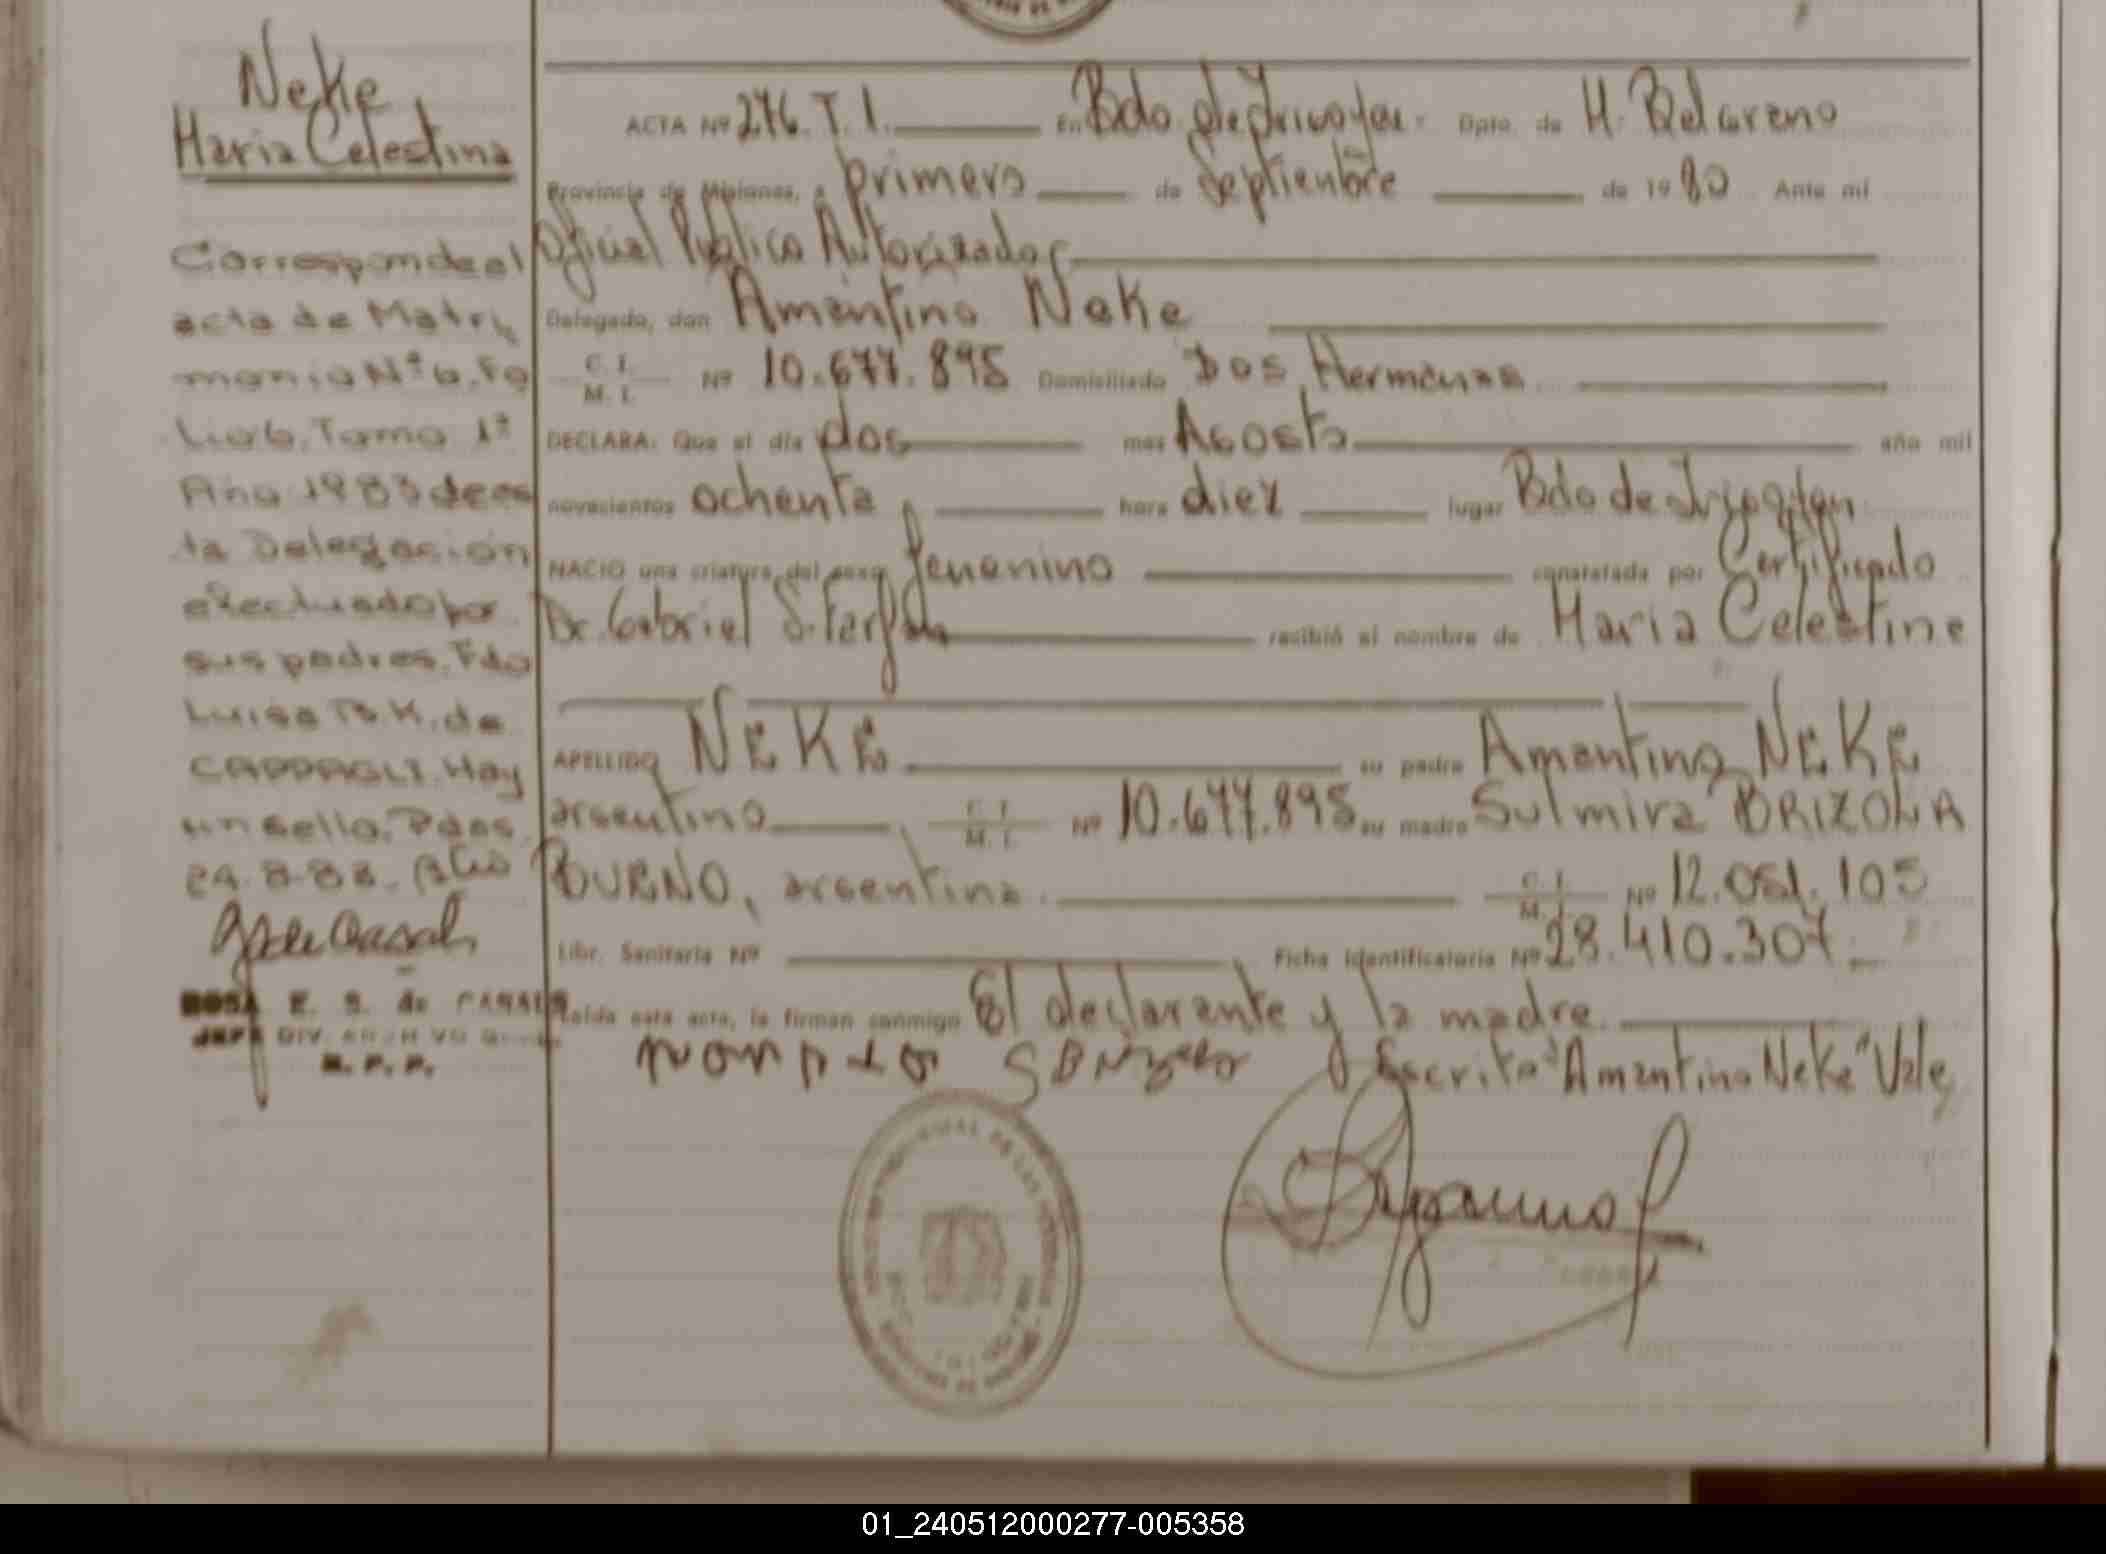 Neke
Maria Celestina
Corresponde al
acta de Matri
monio Nº 6. Fo
lio 6. Tomo 1º
Año 1983 de es
ta Delegacion
efectuado por
sus padres. Fdo
Luisa B. K. de
CAPPAGLI. Hay
un sello. Pdas.
24.8.83.
ROSA E. S. de CASALS
JEFE DIV. ARCHIVO
R. P. P.
ACTA Nº 276. T. I. En Bdo. de Irigoyen. Dpto. de M. Belgrano
Provincia de Misiones, a primero de Septiembre de 1980 Ante mi
Oficial Publico Autorizador
Delegado, don Amantino Neke
C. I. M. I. Nº 10.677.895 Domiciliado Dos Hermanas
DECLARA: Que el día dos mes Agosto año mil
novecientos ochenta hora diez lugar Bdo de Irigoyen
NACIO una criatura del sexo femenino constatada por Certificado
Dr. Gabriel S. recibió el nombre de Maria Celestina
APELLIDO NEKE su padre Amantino NEKE
argentino C. I. M. I. Nº 10.677.895 su madre Sulmira BRIZOLA
BUENO, argentina. C. I. M. Nº 12.051.105
Libr. Sanitaria Nº Ficha identificatoria Nº 28.410.307.
Leída esta acta, la firman conmigo El declarante y la madre.
Escrito "Amantino Neke" Vale
01_240512000277-005358